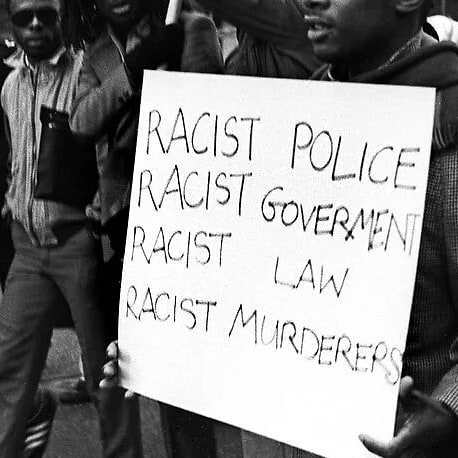 RACIST POLICE
RACIST GOVERMENT
RACIST LAW
RACIST MURDERERS